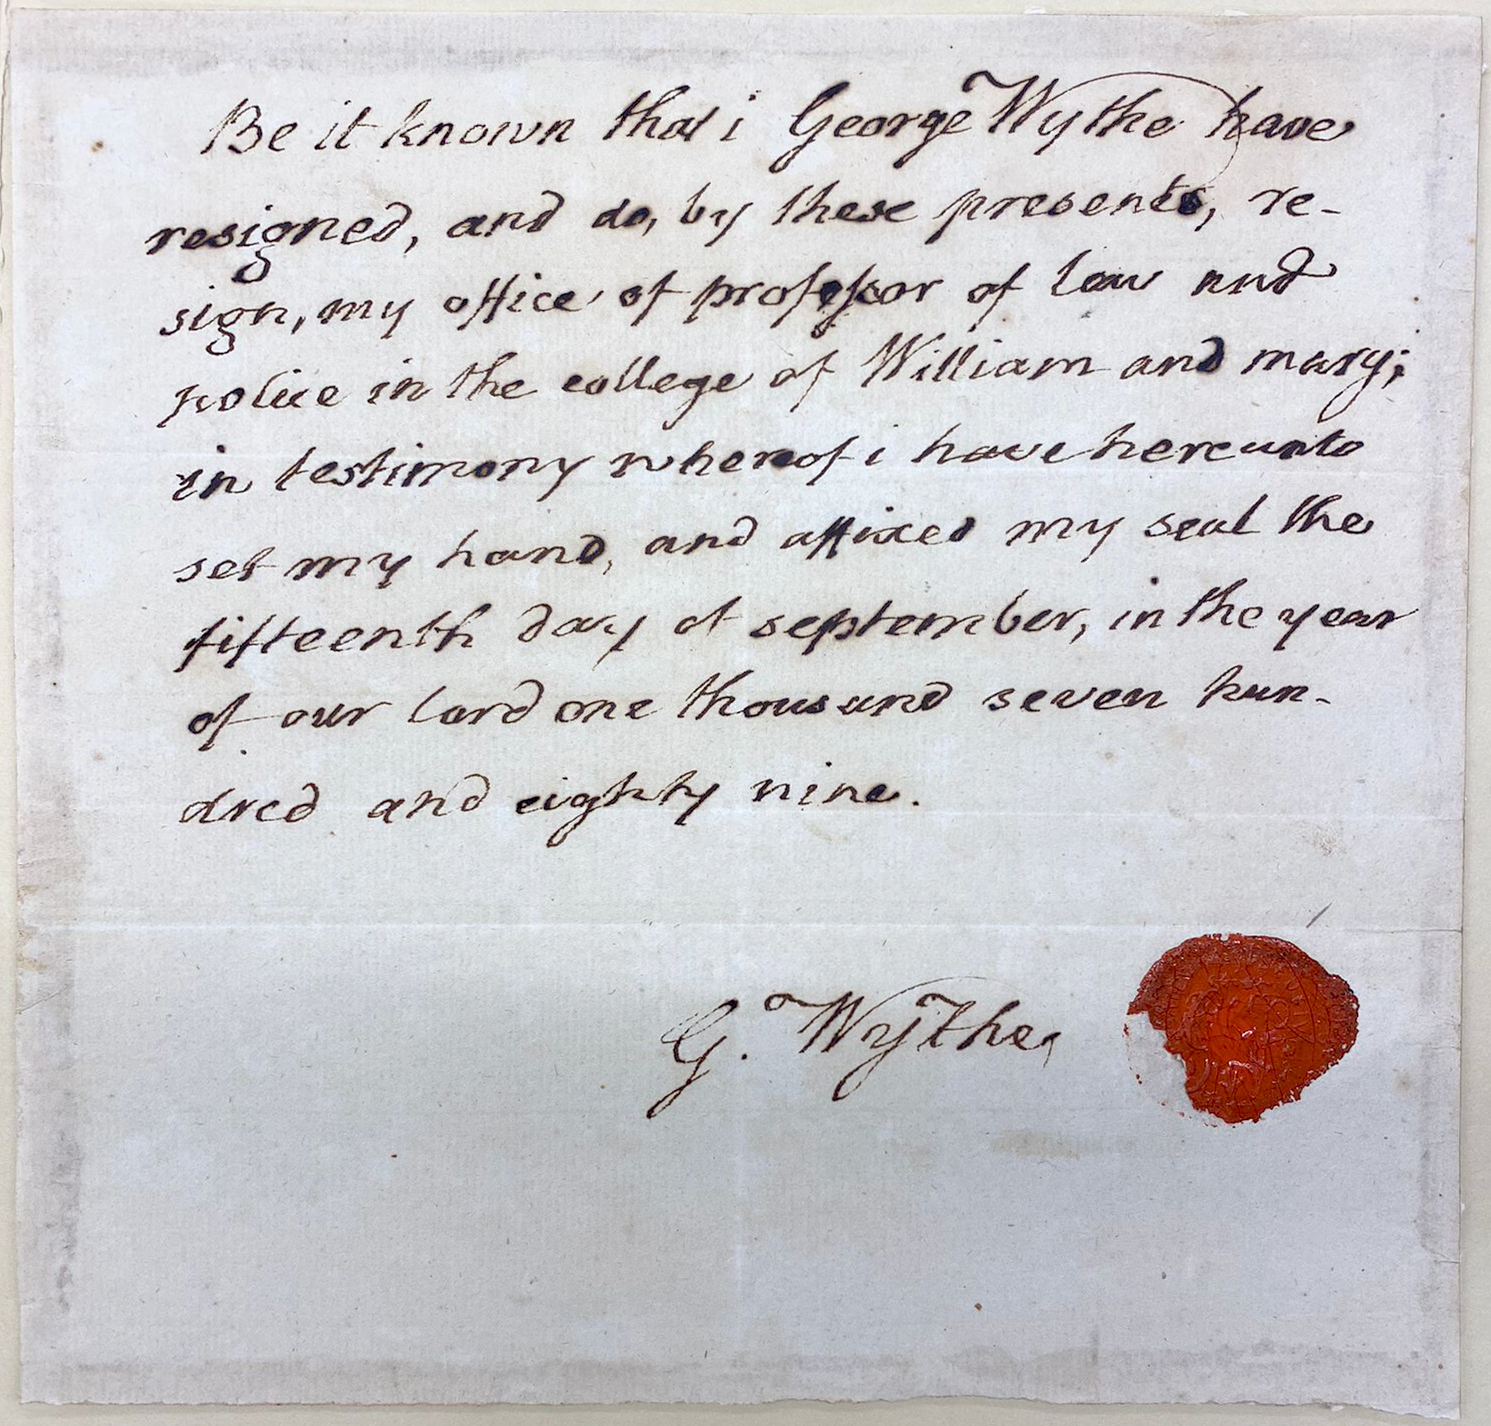 Be it known that i George Wythe have
resigned, and do, by these presents, re-
sign, my office of professor of law and
police in the college of William and mary;
in testimony whereof i have hereunto
set my hand, and affixed my seal the
fifteenth day of september, in the year
of our lord one thousand seven hun-
dred and eighty nine.
G. Wythe,